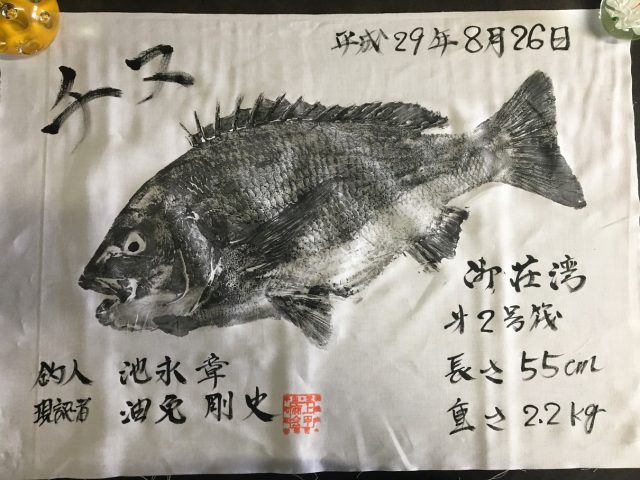 平成29年8月26日
チヌ
御荘湾
才2号筏
長さ55cm
重さ2.2kg
釣人 池永 章
現認者 油免 剛史